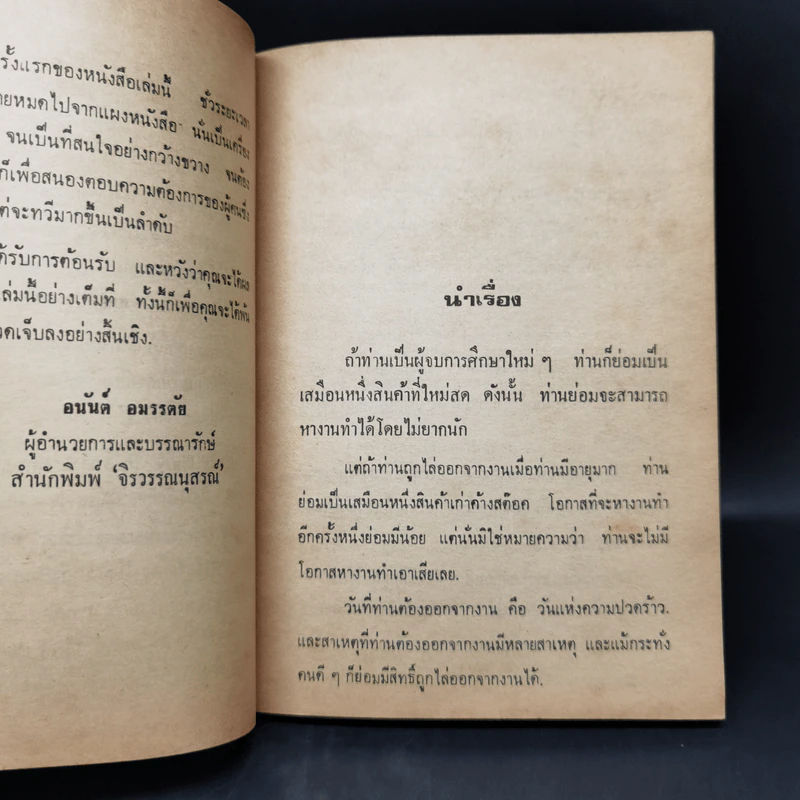 รั้งแรกของหนังสือเล่มนี้ ชั่วระยะเวลา
ายหมดไปจากแผงหนังสือ นั่นเป็นเครื่อง
จนเป็นที่สนใจอย่างกว้างขวาง จนต้อง
ก็เพื่อสนองตอบความต้องการของผู้คนซึ่ง
ต่จะทวีมากขึ้นเป็นลำดับ
ด้รับการต้อนรับ และหวังว่าคุณจะได้ผล
ล่มนี้อย่างเต็มที่ ทั้งนี้ก็เพื่อคุณจะได้พ้น
วดเจ็บลงอย่างสิ้นเชิง.
อนันต์ อมรรตัย
ผู้อำนวยการและบรรณารักษ์
สำนักพิมพ์ ‘จิรวรรณนุสรณ์’
นำเรื่อง
ถ้าท่านเป็นผู้จบการศึกษาใหม่ ๆ ท่านก็ย่อมเป็น
เสมือนหนึ่งสินค้าที่ใหม่สด ดังนั้น ท่านย่อมจะสามารถ
หางานทำได้โดยไม่ยากนัก
แต่ถ้าท่านถูกไล่ออกจากงานเมื่อท่านมีอายุมาก ท่าน
ย่อมเป็นเสมือนหนึ่งสินค้าเก่าค้างสต๊อค โอกาสที่จะหางานทำ
อีกครั้งหนึ่งย่อมมีน้อย แต่นั่นมิใช่หมายความว่า ท่านจะไม่มี
โอกาสหางานทำเอาเสียเลย.
วันที่ท่านต้องออกจากงาน คือ วันแห่งความปวดร้าว.
และสาเหตุที่ท่านต้องออกจากงานมีหลายสาเหตุ และแม้กระทั่ง
คนดี ๆ ก็ย่อมมีสิทธิ์ถูกไล่ออกจากงานได้.